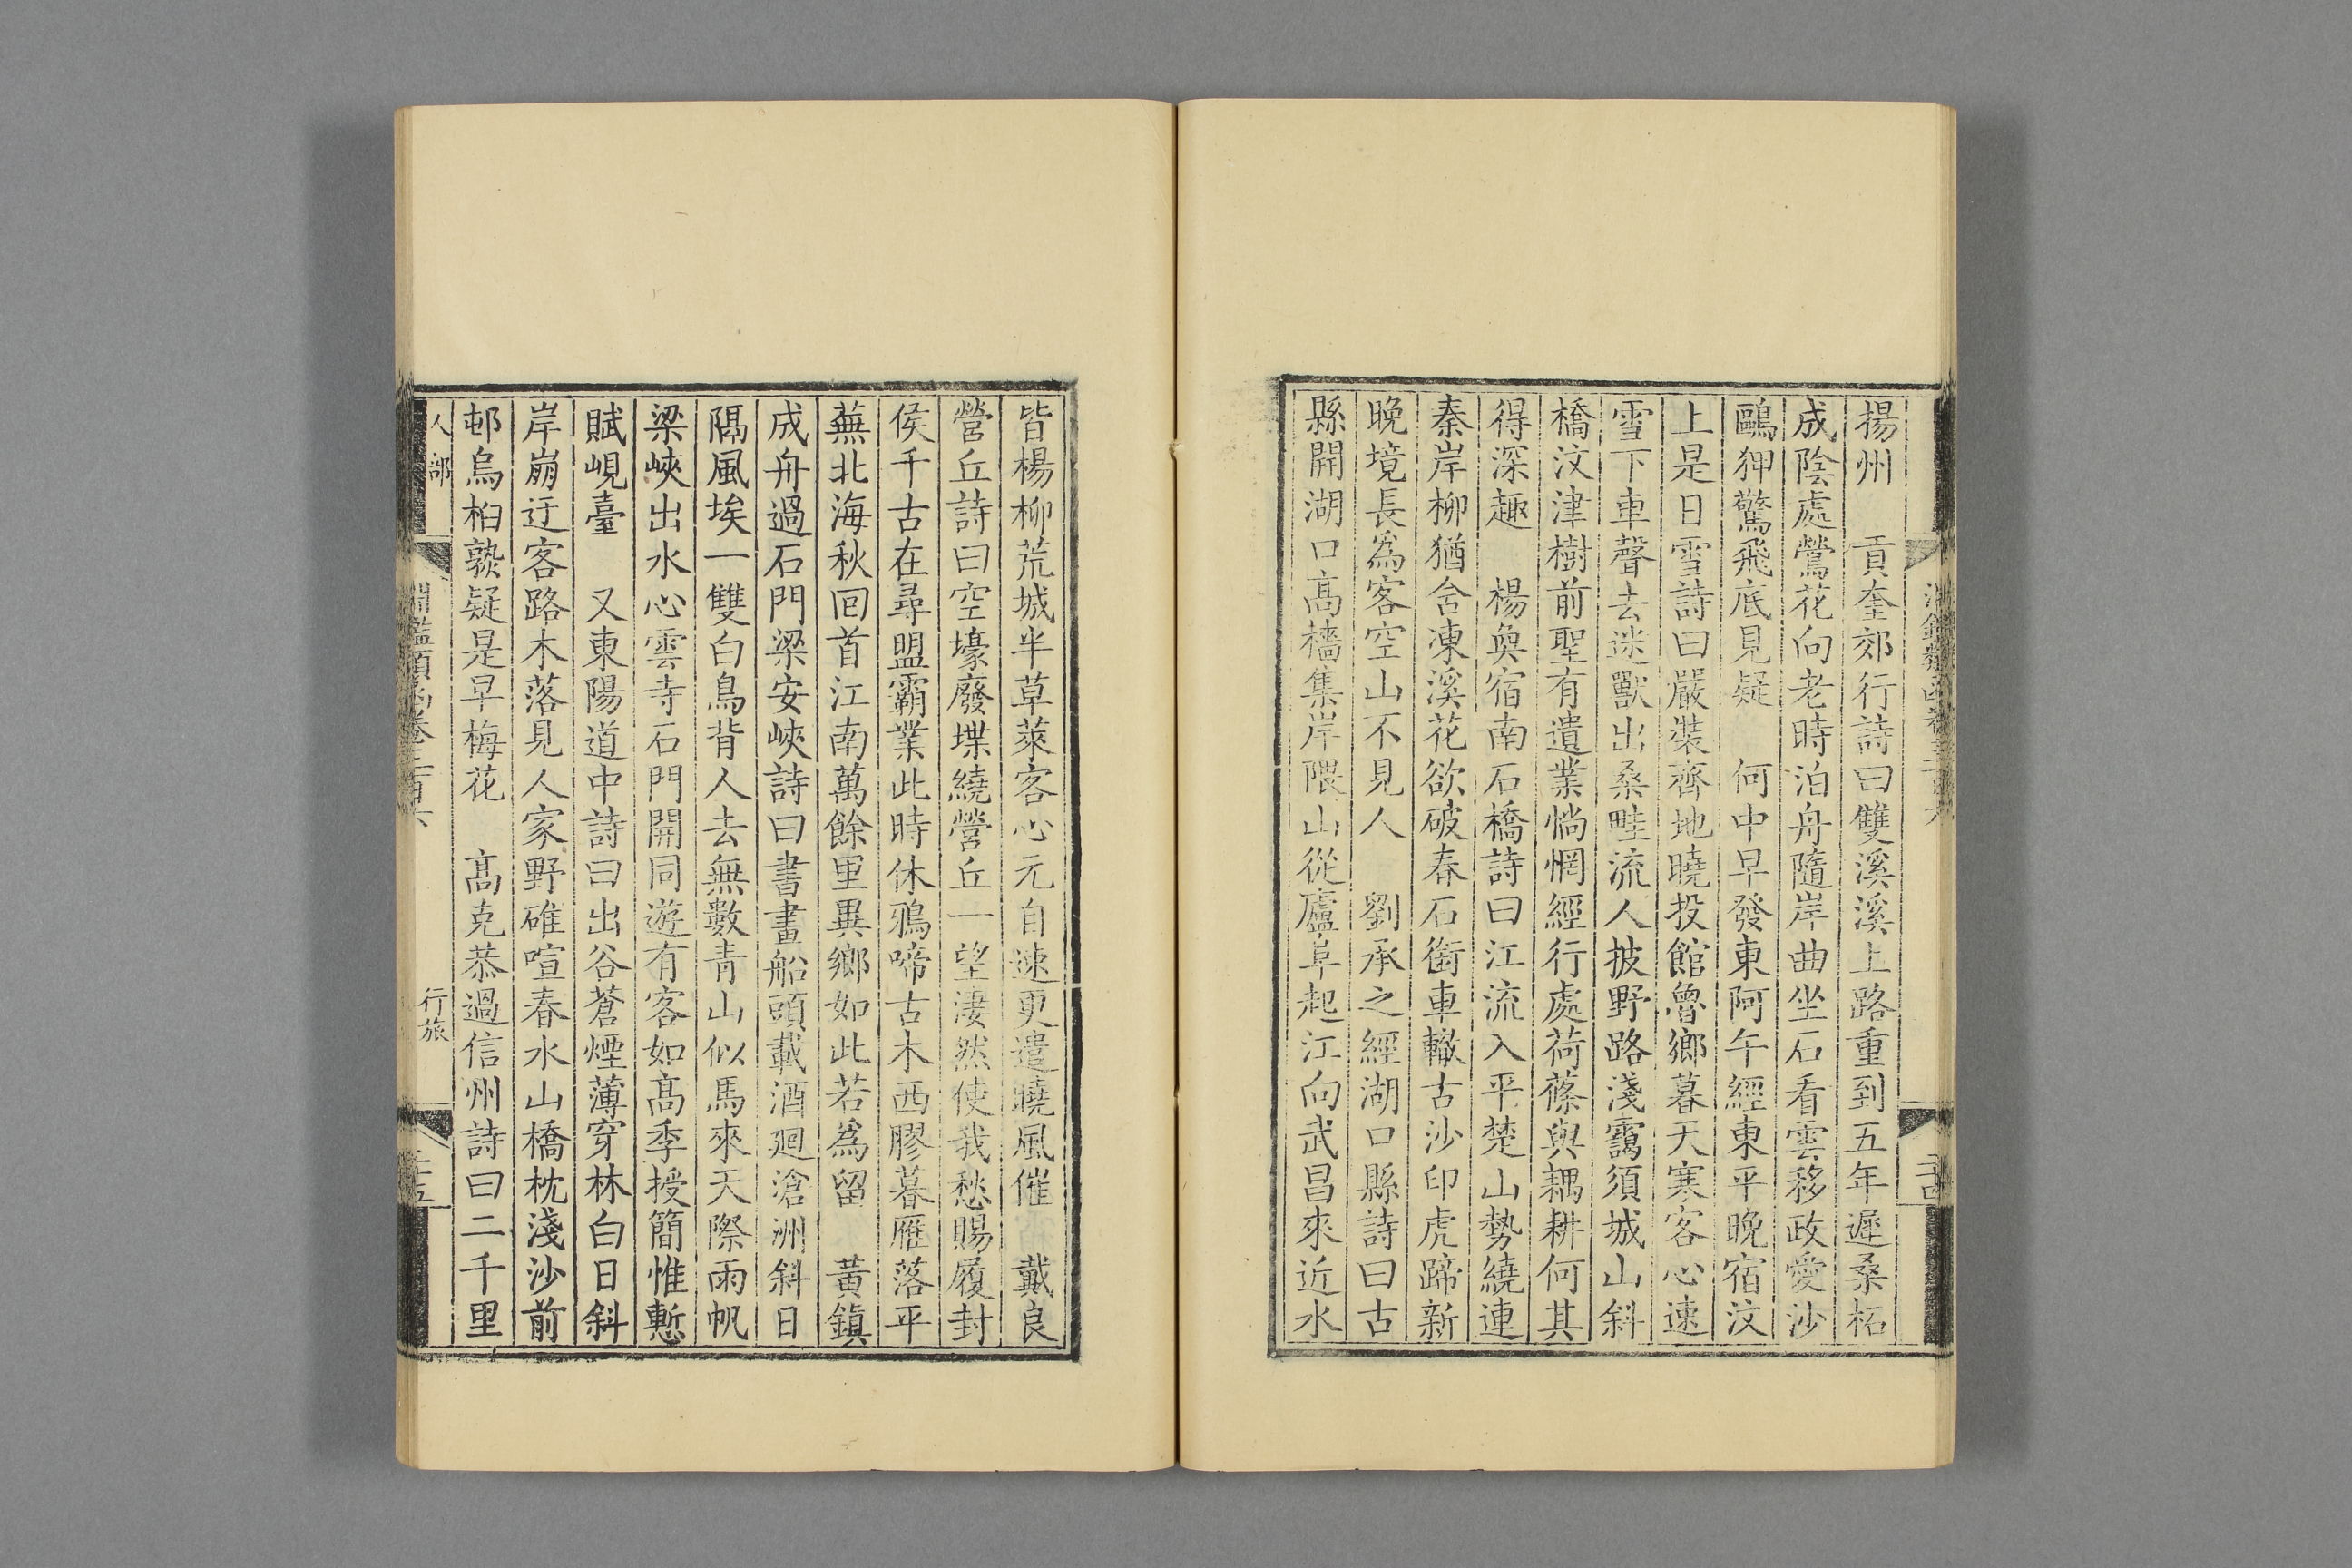 揚州　貢奎郊行詩曰雙溪溪上路重到五年遲桑柘
成陰處鶯花向老時泊舟隨岸曲坐石看雲移政愛沙
鷗狎驚飛底見疑　何中早發東阿午經東平晚宿汶
上是日雪詩曰嚴裝齊地曉投館魯鄉暮天寒客心速
雪下車聲去迷獸出桑畦流人披野路淺靄須城山斜
橋汶津樹前聖有遺業惝惘經行處荷蓧與耦耕何其
得深趣　楊奐宿南石橋詩曰江流入平楚山勢繞連
秦岸柳猶含凍溪花欲破春石銜車轍古沙印虎蹄新
晚境長為客空山不見人　劉承之經湖口縣詩曰古
縣開湖口高檣集岸隈山從廬阜起江向武昌來近水
皆楊柳荒城半草萊客心元自速更遣曉風催　戴良
營丘詩曰空壕廢堞繞營丘一望淒然使我愁賜履封
侯千古在尋盟霸業此時休鴉啼古木西膠暮雁落平
蕪北海秋回首江南萬餘里異鄉如此若為留　黃鎮
成舟過石門梁安峽詩曰書畫船頭載酒迴滄洲斜日
隔風埃一雙白鳥背人去無數青山似馬來天際雨帆
梁峽出水心雲寺石門開同遊有客如高季授簡惟慙
賦峴臺　又東陽道中詩曰出谷蒼煙薄穿林白日斜
岸崩迂客路木落見人家野碓喧春水山橋枕淺沙前
邨烏桕熟疑是早梅花　高克恭過信州詩曰二千里
人部
淵鑑類函卷三百六
行旅
二十五